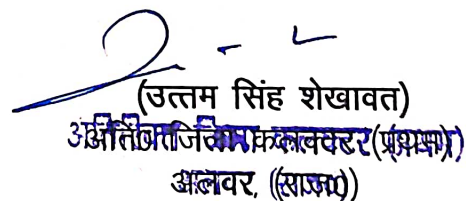 (उत्तम सिंह शेखावत)
अतिरिक्त जिला कलक्टर (प्रथम)
अलवर (राज०)